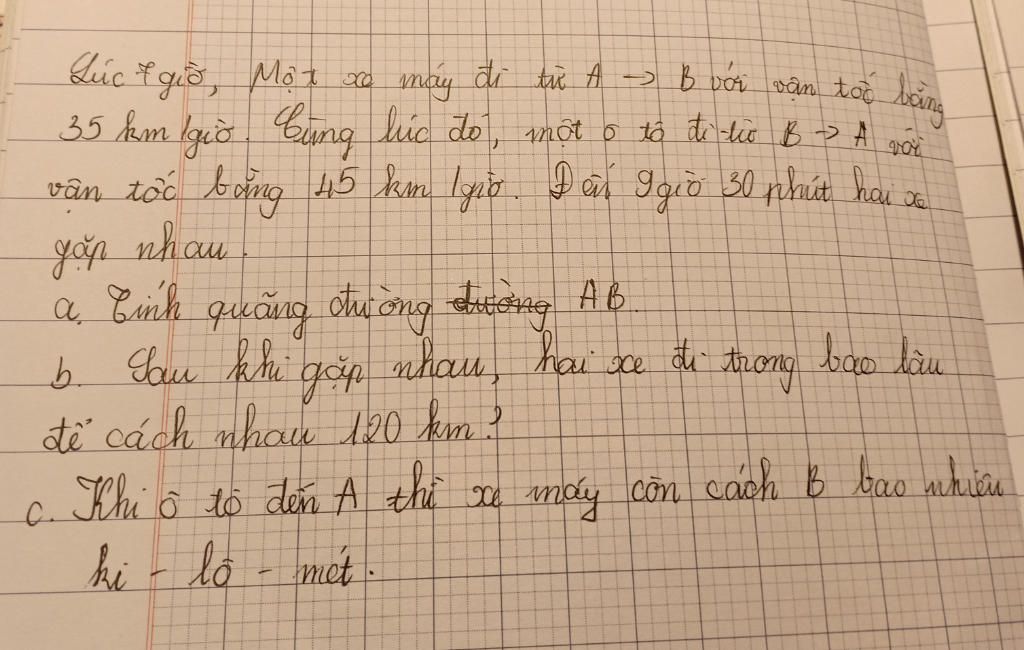 Lúc 7 giờ, Một xe máy đi từ A → B với vận tốc bằng
35 km/giờ. Cùng lúc đó, một ô tô đi từ B → A với
vận tốc bằng 45 km/giờ. Đến 9 giờ 30 phút hai xe
gặp nhau.
a. Tính quãng đường đường AB.
b. Sau khi gặp nhau, hai xe đi trong bao lâu
để cách nhau 120 km?
c. Khi ô tô đến A thì xe máy còn cách B bao nhiêu
ki - lô - mét.